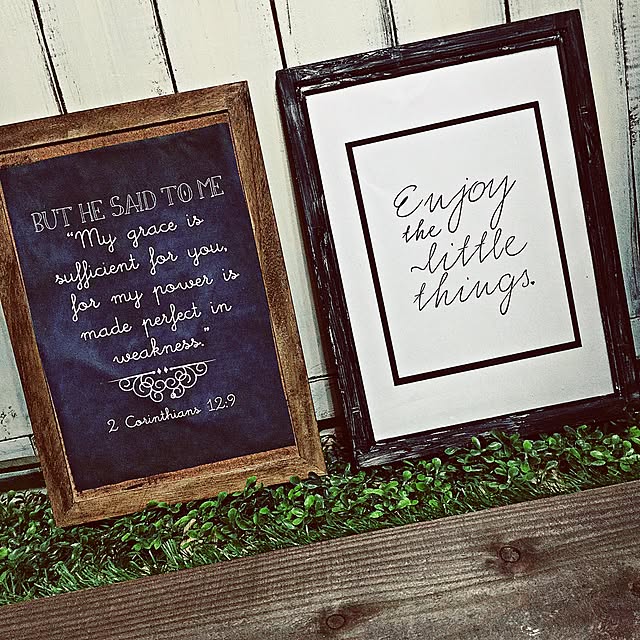 BUT HE SAID TO ME
"My grace is
sufficient for you,
for my power is
made perfect in
weakness."
2 Corinthians 12:9
Enjoy
the
little
things.